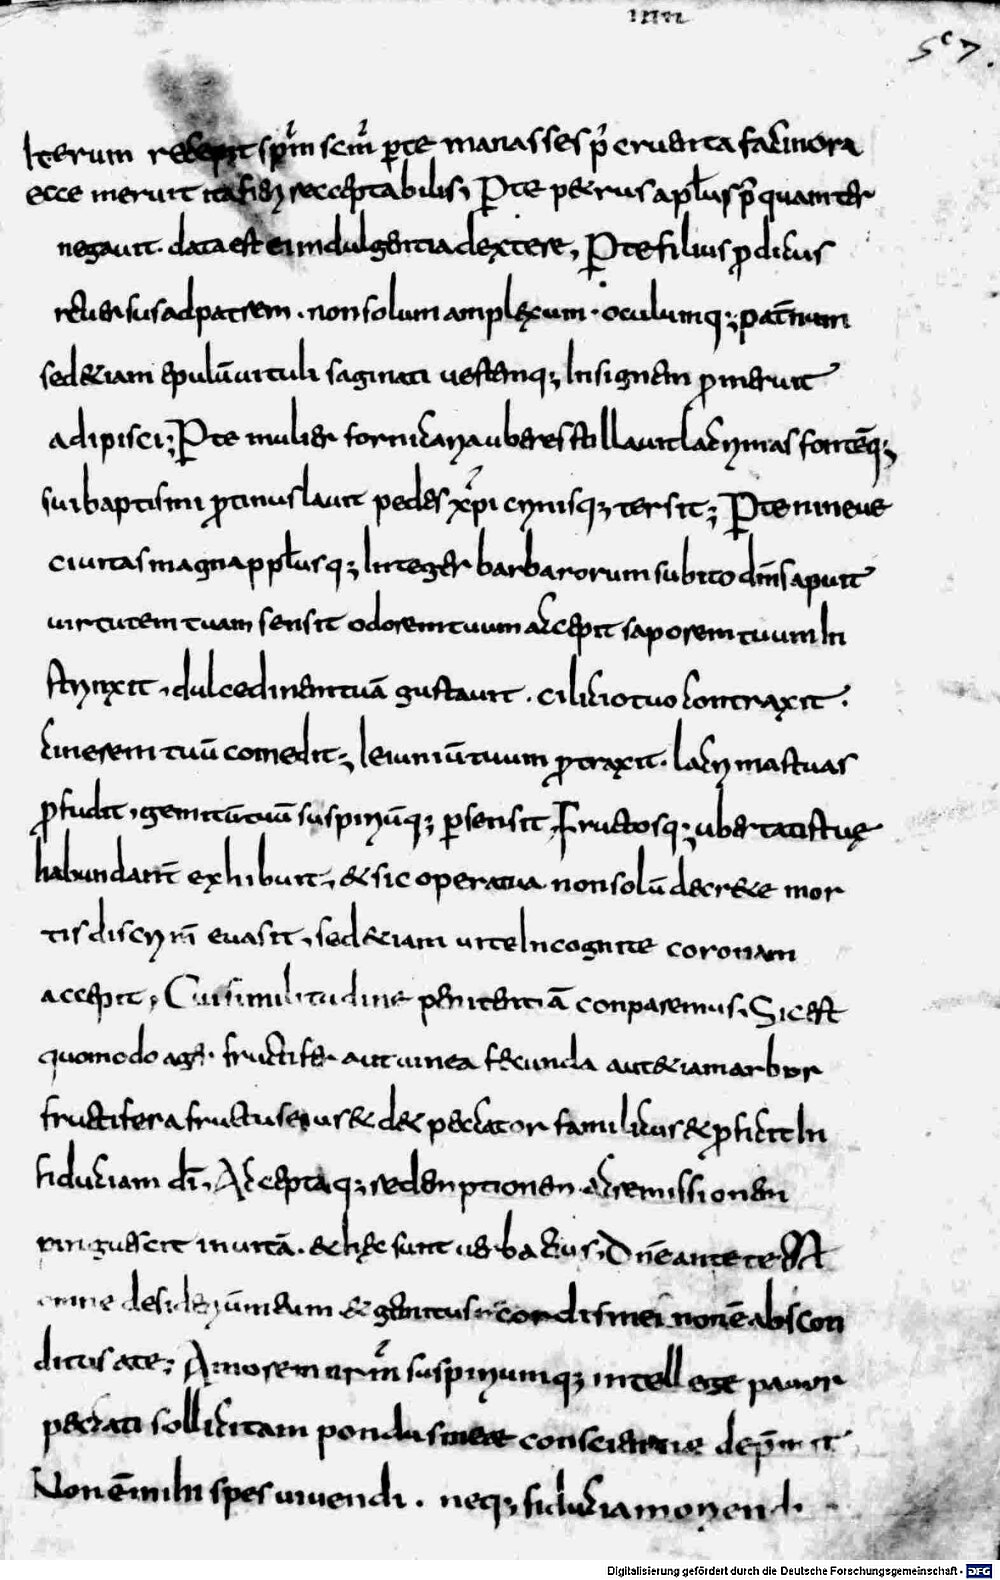 IIII
5c7.
Iterum recepit sp̄m scm̄ p̄te manasses p̄ cruenta facinora
ecce meruit ita fieri recceptabilis; P̄te petrus apl̄us p̄quam ter
negauit. data est ei indulgentia dextere, P̄te filius prodicus
reuersus ad patrem. non solum amplexum. osculumq; pat̄num
sed etiam epulū uituli saginati uestemq; Insignem promeruit
adipisci; P̄te mulier fornicaria uberes stillauit lacrymas fontēq;
sui baptismi protinus lauit pedes xp̄i crinisq; tersit; P̄te nineue
ciuitas magna pp̄lusq; Integer barbarorum subito dn̄i sapuit
uirtutem tuam sensit odorem tuum accepit saporem tuum In
strinxit, dulcedinem tuā gustauit. cilicio tuo contraxit.
cinerem tuū comedit; Ieiuniū tuum protraxit. lacrymas tuas
profudit, gemitū tuū suspiriūq; persensit, Fructosq; ubertatis tuę
habundant̄ exhibuit, & sic operatua non solū decrete mor
tis discrim̄ euasit, sed etiam uite Incognite coronam
accepit, Cui similitudine penitentiā conparemus. Sic est
quomodo ager fructifer aut uinea fecunda aut etiam arbor
fructifera fructus eius & de peccator familicus & proficit In
fiduciam dī, Acceptaq; redemptionem ac remissionem
pinguescit in uitā. & hec sunt uerba eius, Dn̄e ante te est
omne desiderium meum & gemitus cordis mei non ē abscon
ditus a te; Amorem suspiriumq; intellege pauor
peccati sollicitam pondus meae conscientiae
Non ē mihi spes uiuendi. neq; fiducia moriendi
Digitalisierung gefördert durch die Deutsche Forschungsgemeinschaft - DFG